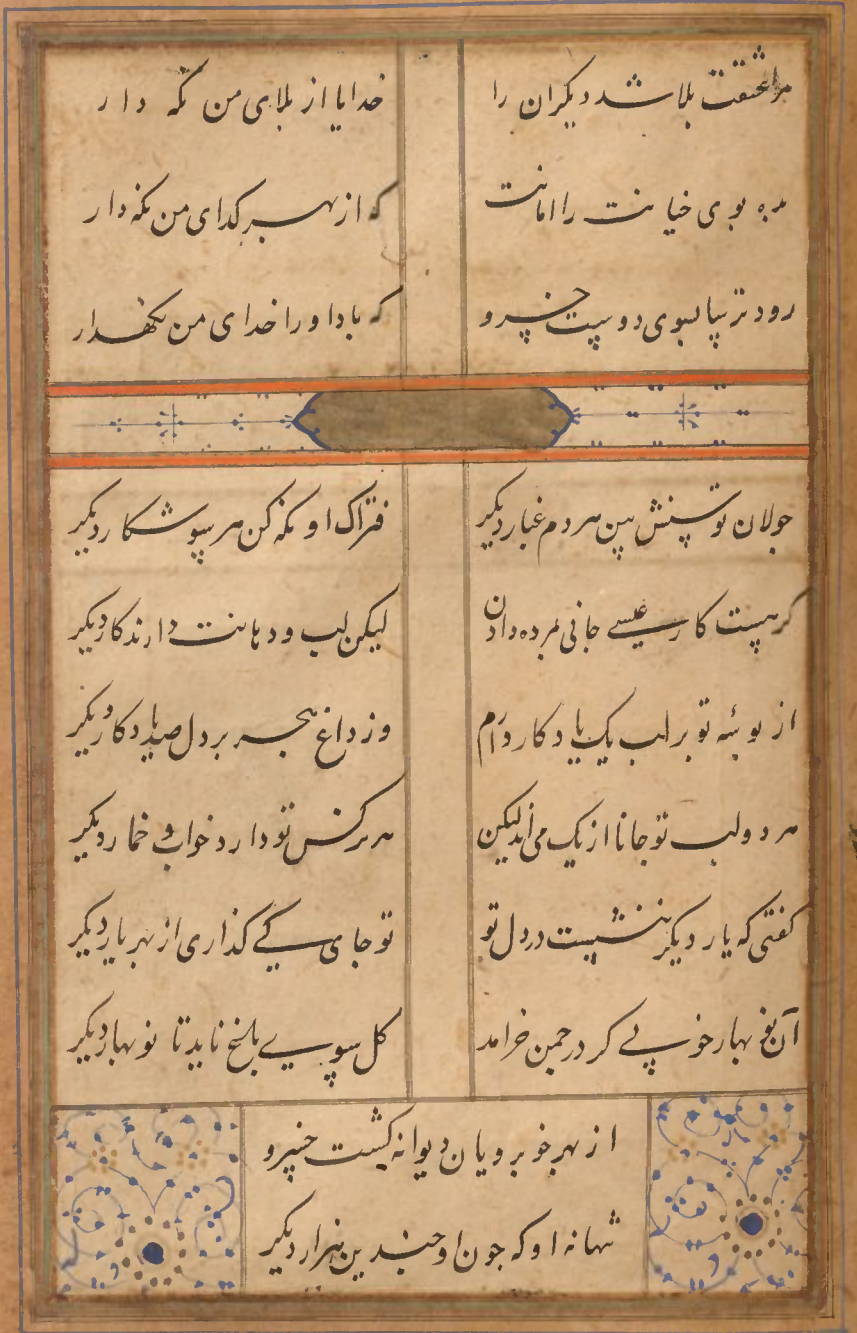 مرا عشقت بلا شد دیکران را
خدایا از بلای من نکه دار
مده بوی خیانت را امانت
که از بهر کدای من نکه دار
رود تر سا بسوی دوست خسرو
که بادا و را خدای من نکهدار
جولان توسنش بین هر دم غبار دیکر
فتراک او نکه کن هر سو شکار دیکر
کر هست کار عیسے جانی بمرده دادن
لیکن لب و دهانت دارند کار دیکر
از بوسهٔ تو بر لب یک یادکار دارم
وز داغ هجر بر دل صد یادکار دیکر
هر دو لب تو جانا از یک می اند لیکن
هر نرکس تو دارد خواب و خمار دیکر
کفتی که یار دیکر بنشست در دل تو
تو جای کے کذاری از بهر یار دیکر
آن نو بهار خوبے کر در چمن خرامد
کل سوے باغ ناید تا نو بهار دیکر
از بهر خوبرویان دیوانه کشت خسرو
تنها نه او که چون او چندین هزار دیکر